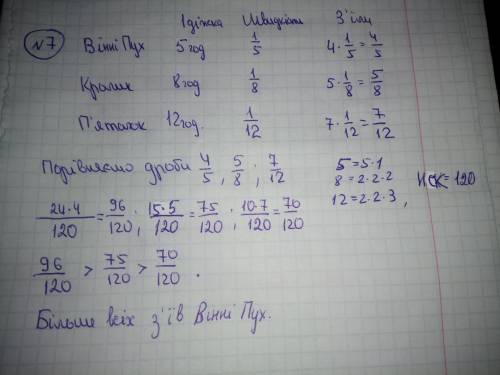 №7
1 діжка Швидкість З'їли
Вінні Пух 5 год 1/5 4 · 1/5 = 4/5
Кролик 8 год 1/8 5 · 1/8 = 5/8
П'яточок 12 год 1/12 7 · 1/12 = 7/12
Порівняємо дроби 4/5 ; 5/8 ; 7/12
5 = 5 · 1
8 = 2 · 2 · 2
12 = 2 · 2 · 3 , НСК = 120
24·4/120 = 96/120 ; 15·5/120 = 75/120 ; 10·7/120 = 70/120
96/120 > 75/120 > 70/120 .
Більше всіх з'їв Вінні Пух.